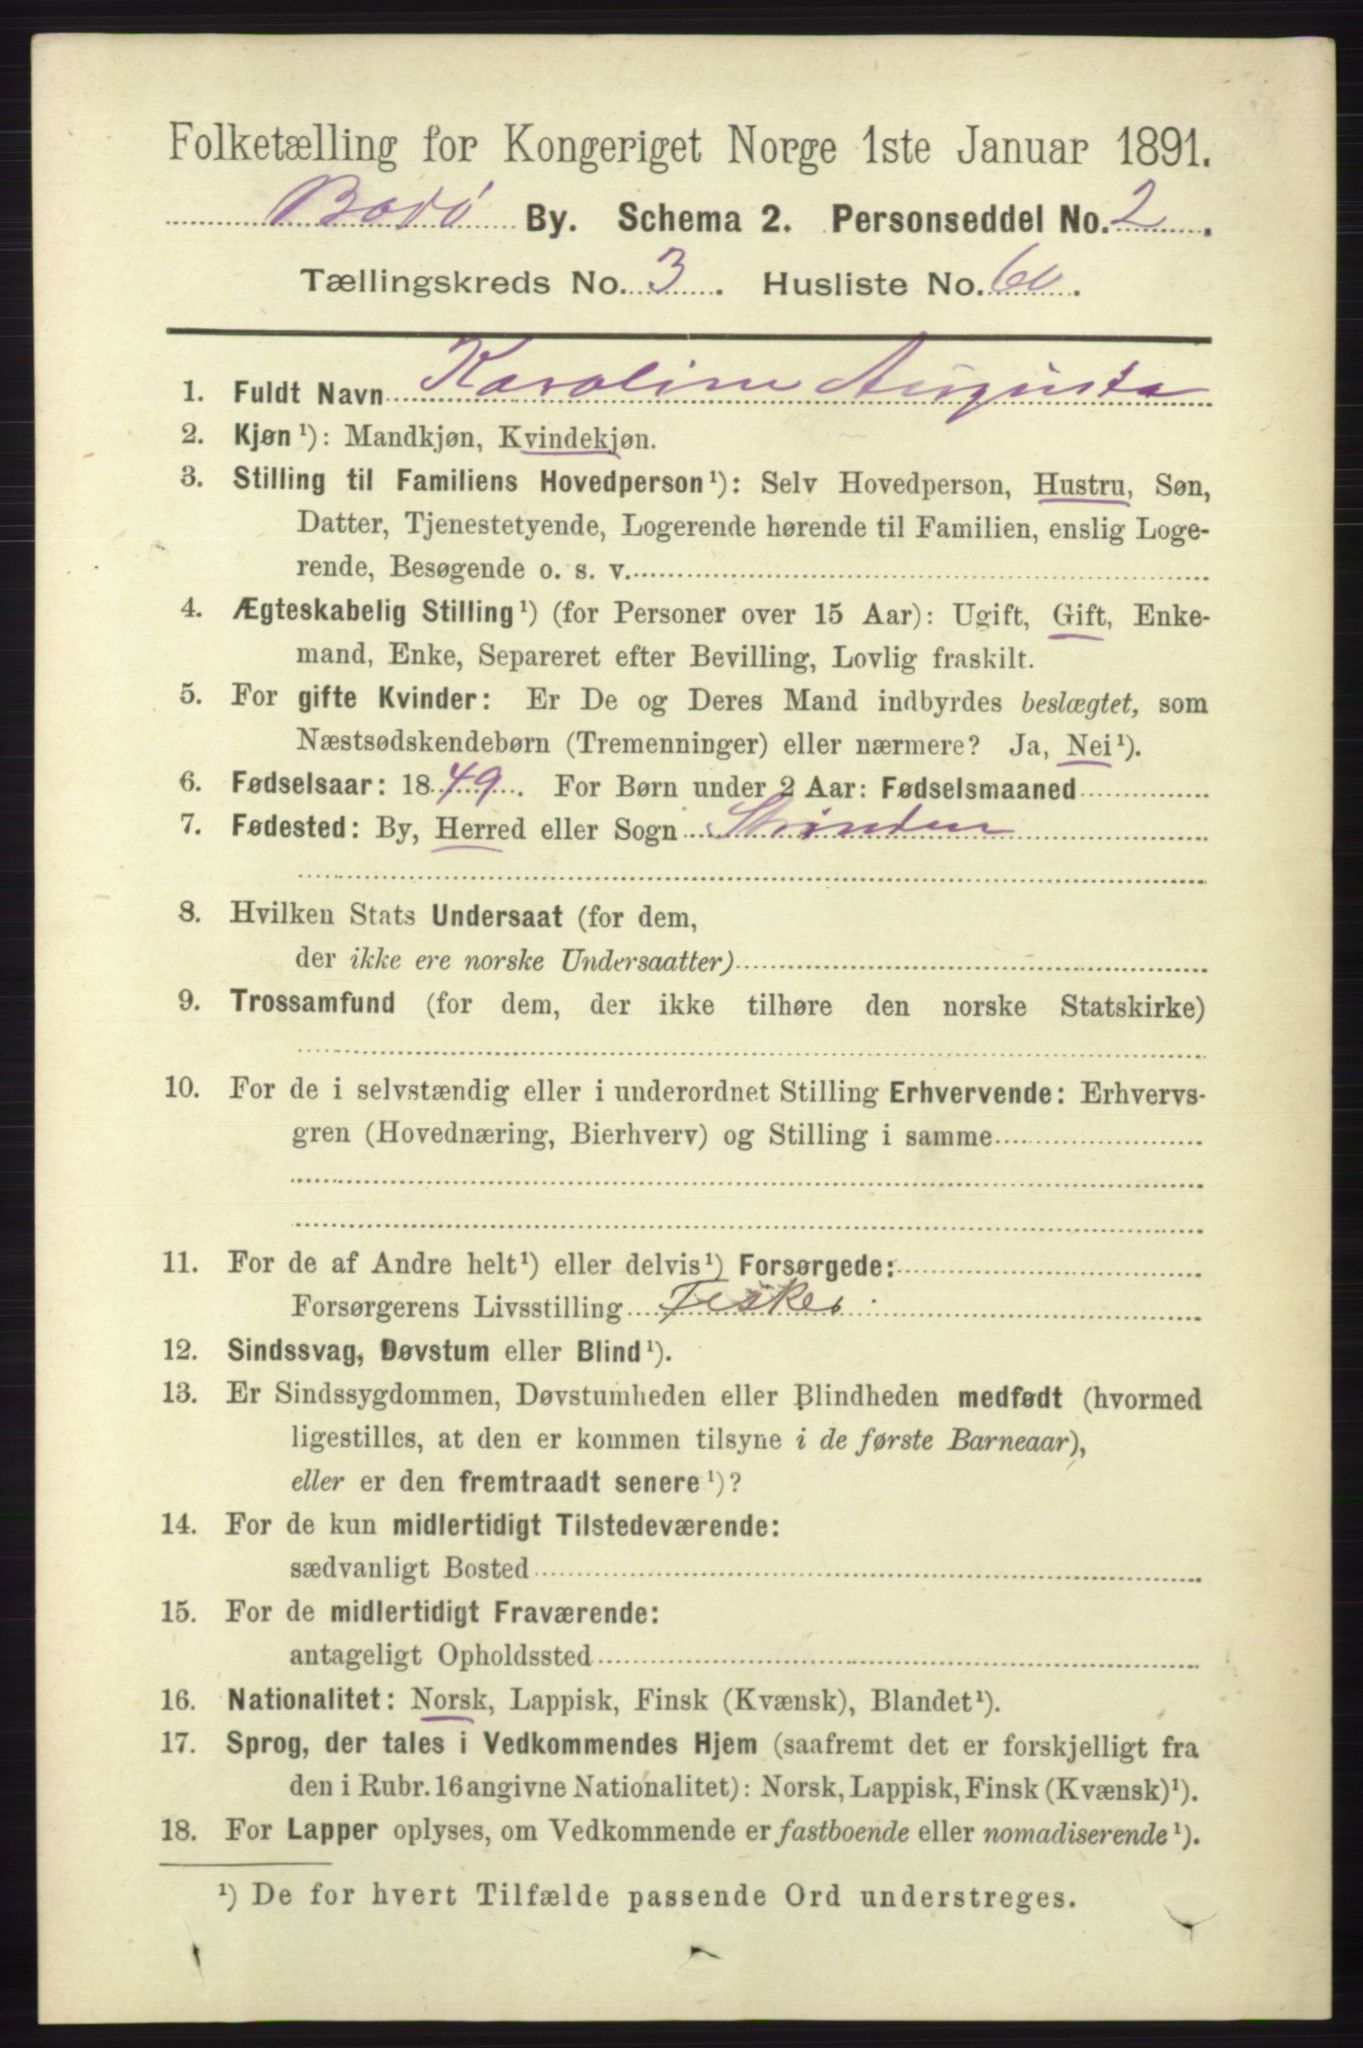 Folketælling for Kongeriget Norge 1ste Januar 1891.
Bodø By. Schema 2. Personseddel No. 2.
Tællingskreds No. 3. Husliste No. 60.
1. Fuldt Navn Karoline Augusta
2. Kjøn¹): Mandkjøn, Kvindekjøn.
3. Stilling til Familiens Hovedperson¹): Selv Hovedperson, Hustru, Søn,
Datter, Tjenestetyende, Logerende hørende til Familien, enslig Loge-
rende, Besøgende o. s. v.
4. Ægteskabelig Stilling¹) (for Personer over 15 Aar): Ugift, Gift, Enke-
mand, Enke, Separeret efter Bevilling, Lovlig fraskilt.
5. For gifte Kvinder: Er De og Deres Mand indbyrdes beslægtet, som
Næstsødskendebørn (Tremenninger) eller nærmere? Ja, Nei¹).
6. Fødselsaar: 1849. For Børn under 2 Aar: Fødselsmaaned
7. Fødested: By, Herred eller Sogn Strinden
8. Hvilken Stats Undersaat (for dem,
der ikke ere norske Undersaatter)
9. Trossamfund (for dem, der ikke tilhøre den norske Statskirke)
10. For de i selvstændig eller i underordnet Stilling Erhvervende: Erhvervs-
gren (Hovednæring, Bierhverv) og Stilling i samme
11. For de af Andre helt¹) eller delvis¹) Forsørgede:
Forsørgerens Livsstilling Fisker
12. Sindssvag, Døvstum eller Blind¹).
13. Er Sindssygdommen, Døvstumheden eller Blindheden medfødt (hvormed
ligestilles, at den er kommen tilsyne i de første Barneaar),
eller er den fremtraadt senere¹)?
14. For de kun midlertidigt Tilstedeværende:
sædvanligt Bosted
15. For de midlertidigt Fraværende:
antageligt Opholdssted
16. Nationalitet: Norsk, Lappisk, Finsk (Kvænsk), Blandet¹).
17. Sprog, der tales i Vedkommendes Hjem (saafremt det er forskjelligt fra
den i Rubr. 16 angivne Nationalitet): Norsk, Lappisk, Finsk (Kvænsk)¹).
18. For Lapper oplyses, om Vedkommende er fastboende eller nomadiserende¹).
¹) De for hvert Tilfælde passende Ord understreges.